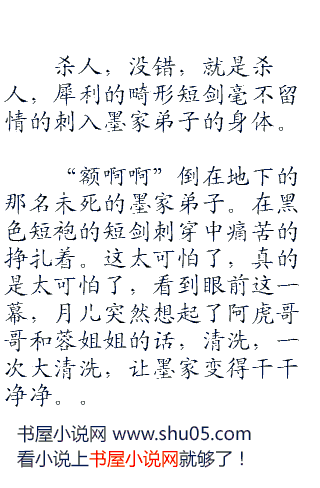 杀人，没错，就是杀
人，犀利的畸形短剑毫不留
情的刺入墨家弟子的身体。
“额啊啊”倒在地下的
那名未死的墨家弟子。在黑
色短袍的短剑刺穿中痛苦的
挣扎着。这太可怕了，真的
是太可怕了，看到眼前这一
幕，月儿突然想起了阿虎哥
哥和蓉姐姐的话，清洗，一
次大清洗，让墨家变得干干
净净。。
书屋小说网 www.shu05.com
看小说上书屋小说网就够了！